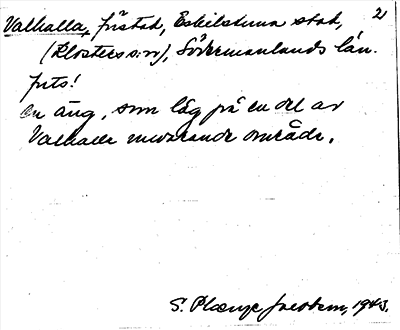 Valhalla, fristad, Eskilstuna stad, 2
(Klosters sn), Södermanlands län.
En äng, som låg på en del av
Valhalla nuvarande område.
S. 1943.